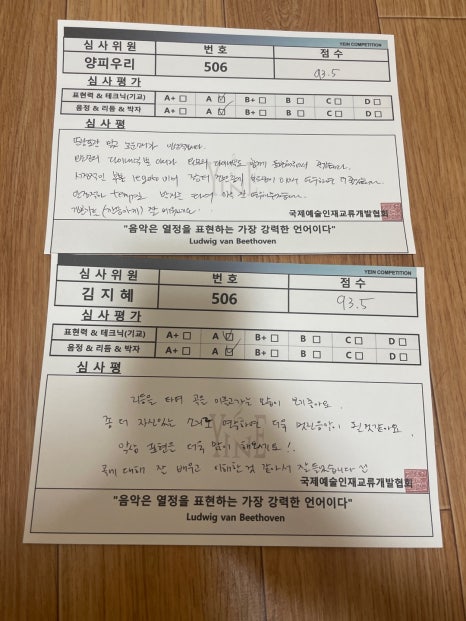 YEIN COMPETITION
심사위원 번호 점수
양피우리 506 93.5
심사평가
표현력 & 테크닉(기교) A+ □ A ☑ B+ □ B □ C □ D □
음정 & 리듬 & 박자 A+ □ A ☑ B+ □ B □ C □ D □
심사평
국제예술인재교류개발협회
"음악은 열정을 표현하는 가장 강력한 언어이다"
Ludwig van Beethoven
YEIN COMPETITION
심사위원 번호 점수
김지혜 506 93.5
심사평가
표현력 & 테크닉(기교) A+ □ A ☑ B+ □ B □ C □ D □
음정 & 리듬 & 박자 A+ □ A ☑ B+ □ B □ C □ D □
심사평
리듬을 타며 곡을 이끌고가는 모습이 보기좋아요.
좀 더 자신있는 소리로 연주하면 더욱 멋진음악이 될것같아요.
악상 표현은 더욱 많이 해보세요!
곡에 대해 잘 배우고 이해한것 같아서 잘 들었습니다
국제예술인재교류개발협회
"음악은 열정을 표현하는 가장 강력한 언어이다"
Ludwig van Beethoven